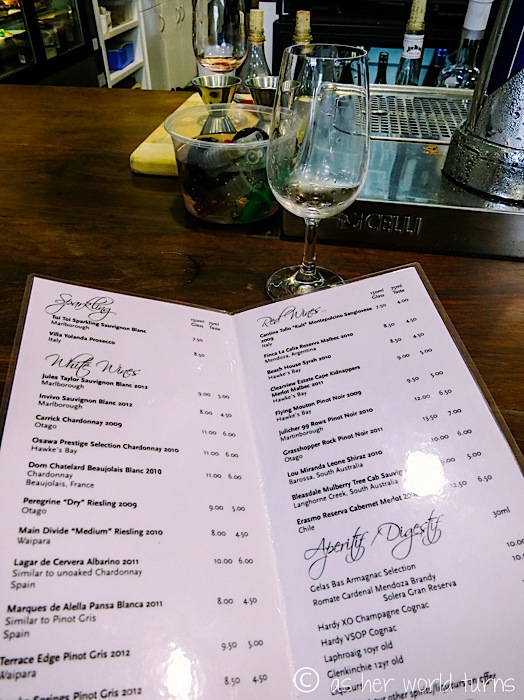 PICELLI
Sparkling
150ml Glass 75ml Taste
Toi Toi Sparkling Sauvignon Blanc 7.50
Marlborough
Villa Yolanda Prosecco 8.50
Italy
White Wines
Jules Taylor Sauvignon Blanc 2012 9.00 5.00
Marlborough
Invivo Sauvignon Blanc 2012 8.00 4.50
Marlborough
Carrick Chardonnay 2009 11.00 6.00
Otago
Osawa Prestige Selection Chardonnay 2010 11.00 6.00
Hawke's Bay
Dom Chatelard Beaujolais Blanc 2010 11.00 6.00
Chardonnay
Beaujolais, France
Peregrine "Dry" Riesling 2009 9.00 5.00
Otago
Main Divide "Medium" Riesling 2010 8.00 4.50
Waipara
Lagar de Cervera Albarino 2011 10.00 6.00
Similar to unoaked Chardonnay
Spain
Marques de Alella Pansa Blanca 2011 8.00 4.50
Similar to Pinot Gris
Spain
Terrace Edge Pinot Gris 2012 9.50 5.00
Waipara
Springs Pinot Gris 2012 8.50 4.50
Red Wines
150ml Glass 75ml Taste
Cantina Tollo "Kult" Montepulciano Sangiovese 7.50 4.00
2009
Italy
Finca La Celia Reserva Malbec 2010 8.50 4.50
Mendoza, Argentina
Beach House Syrah 2010 9.00 5.00
Hawke's Bay
Clearview Estate Cape Kidnappers 9.00 5.00
Merlot Malbec 2011
Hawke's Bay
Flying Mouton Pinot Noir 2009
Hawke's Bay
Julicher 99 Rows Pinot Noir 2010
Martinborough
Grasshopper Rock Pinot Noir 2011 13.50 7.00
Otago
Lou Miranda Leone Shiraz 2010
Barossa, South Australia
Bleasdale Mulberry Tree Cab Sauv
Langhorne Creek, South Australia
Erasmo Reserva Cabernet Merlot 12.50 6.50
Chile
Aperitif / Digestif
30ml
Gelas Bas Armagnac Selection 10.00
Romate Cardenal Mendoza Brandy
Solera Gran Reserva
Hardy XO Champagne Cognac
Hardy VSOP Cognac
Laphroaig 10yr old
Glenkinchie 12yr old
our other spirits
© as her world turns